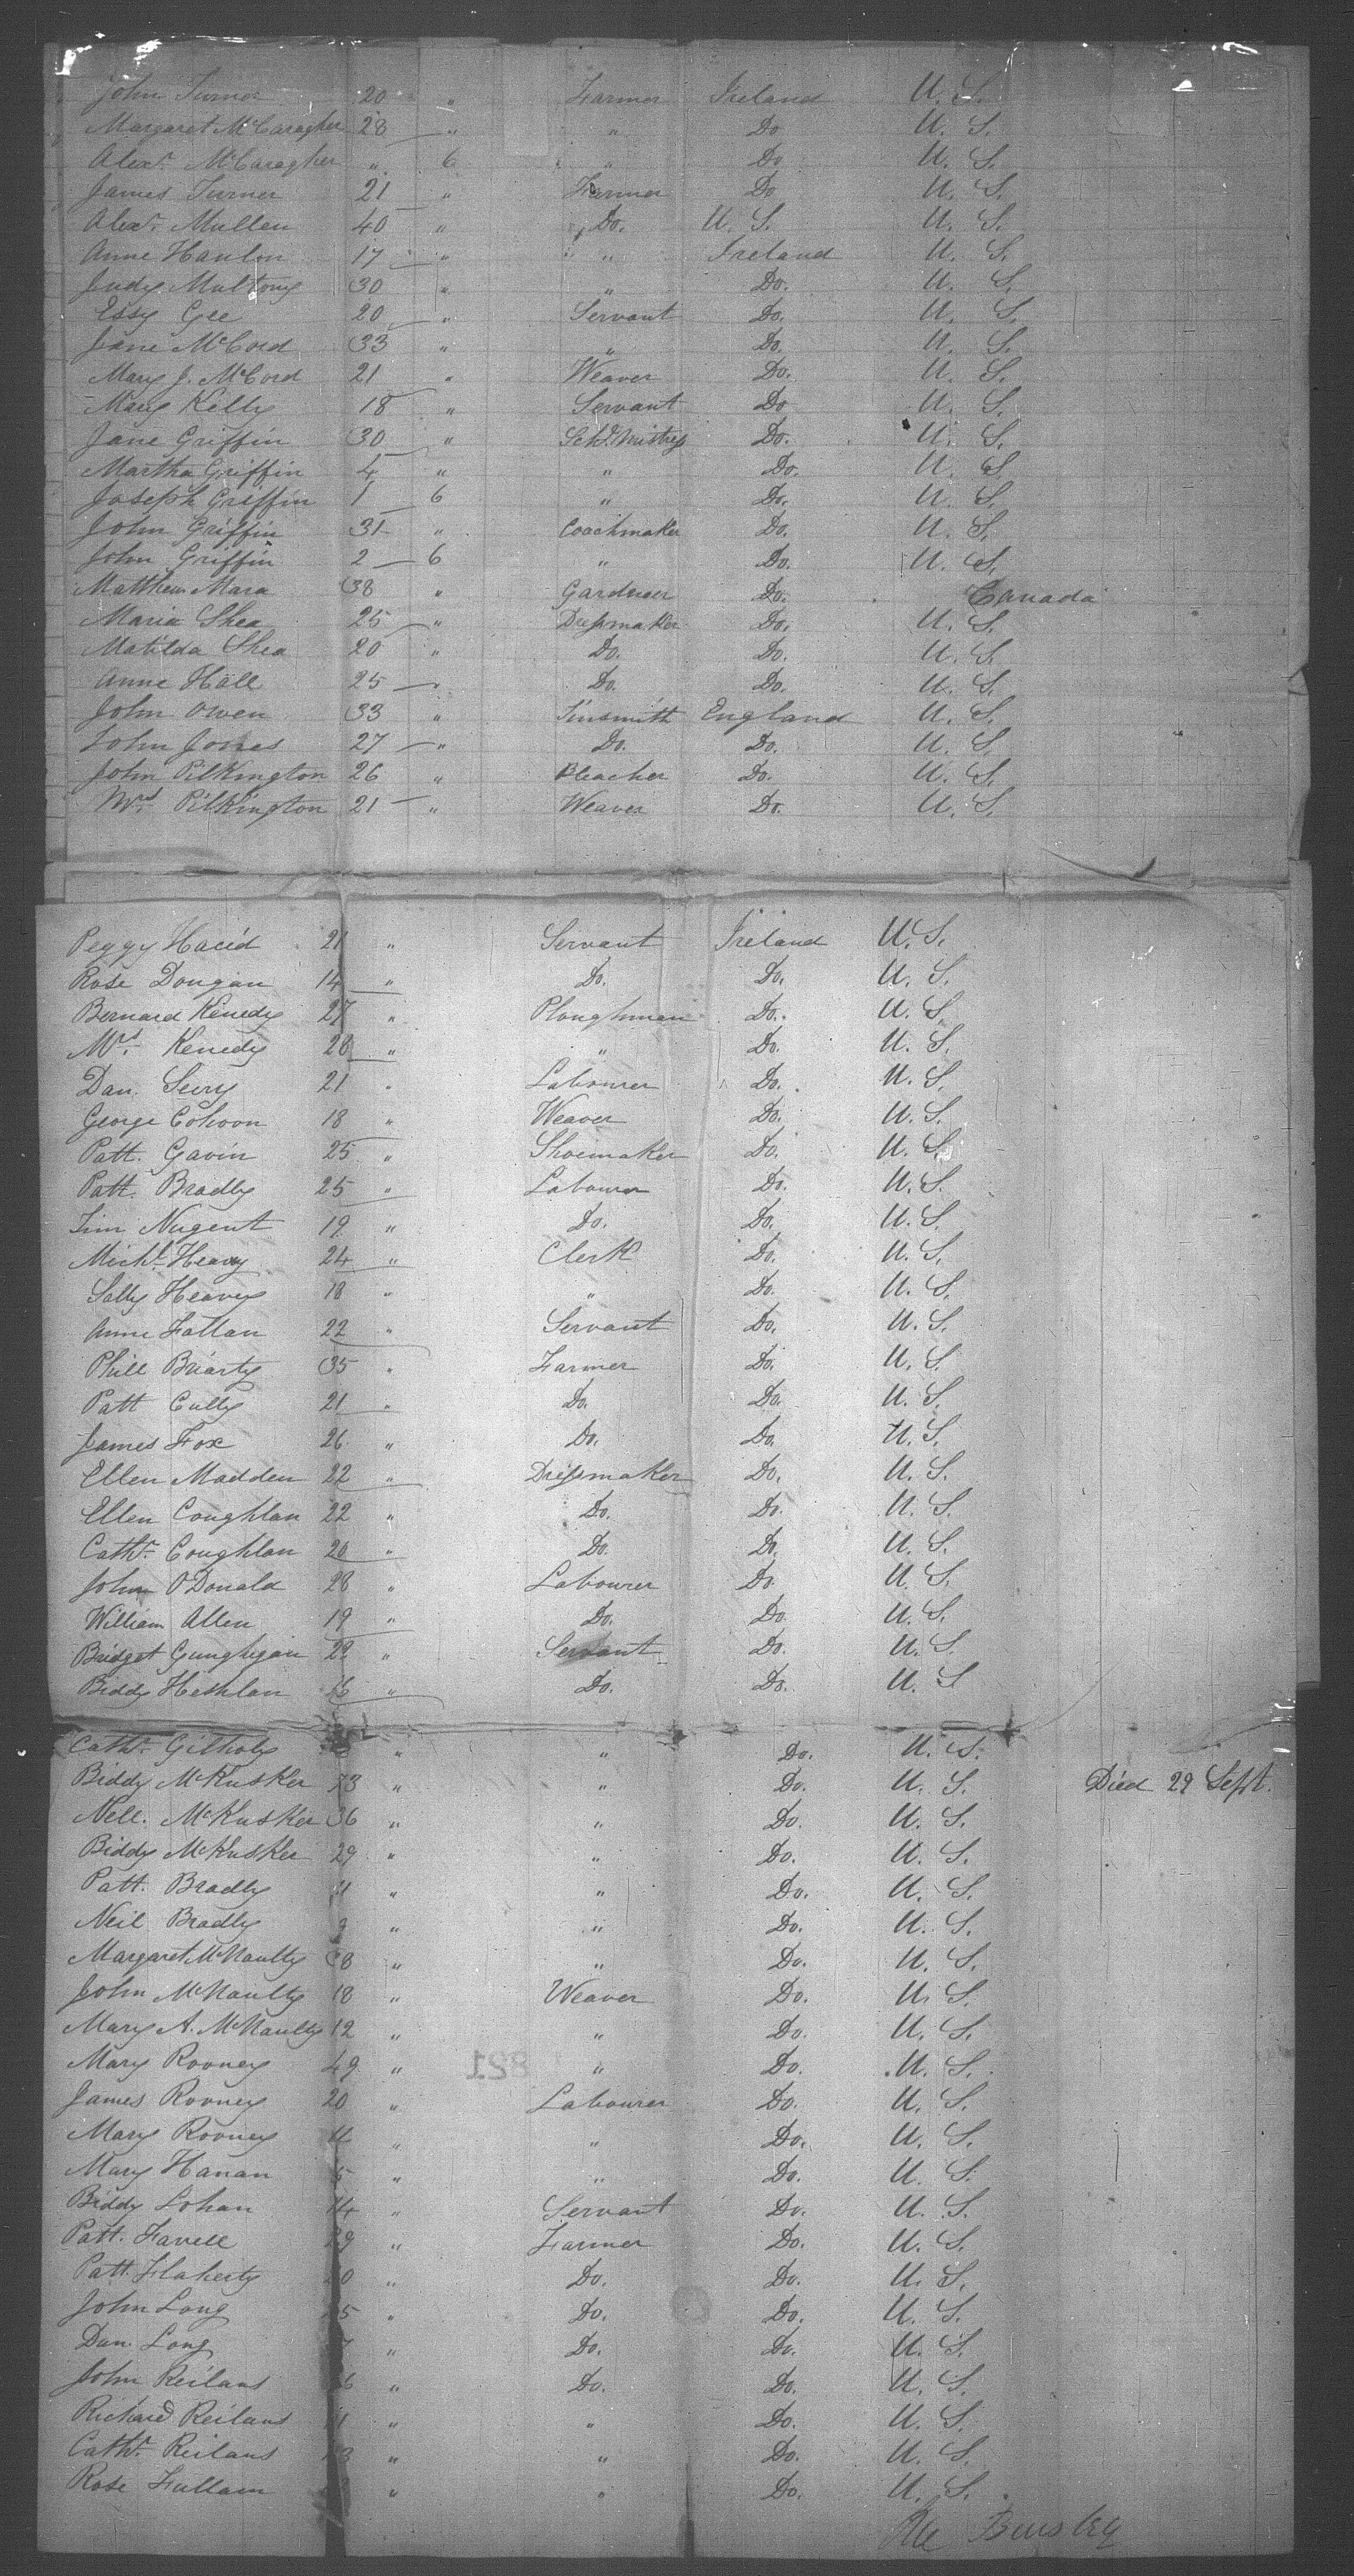 John Turner 20 " Farmer Ireland U. S.
Margaret McCaragher 28 " " Do U. S.
Alexr. McCaragher " 6 " Do U. S.
James Turner 21 " Farmer Do U. S.
Alexr. Mullen 40 " Do. U. S. U. S.
Anne Hanlon 17 " " Ireland U. S.
Judy Multony 30 " " Do. U. S.
Essy Gee 20 " Servant Do. U. S.
Jane McCord 33 " " Do. U. S.
Mary J. McCord 21 " Weaver Do. U. S.
Mary Kelly 18 " Servant Do U. S.
Jane Griffin 30 " Schl. Mistress Do. U. S.
Martha Griffin 4 " " Do. U. S
Joseph Griffin 1 6 " Do. U. S.
John Griffin 31 " Coachmaker Do. U. S.
John Griffin 2 6 " Do. U. S.
Matthew Mara 38 " Gardner Do. Canada
Maria Shea 25 " Dressmaker Do. U. S.
Matilda Shea 20 " Do. Do. U. S.
Anne Hall 25 " Do. Do. U. S.
John Owen 33 " Tinsmith England U. S.
John Jones 27 " Do. Do. U. S.
John Pilkington 26 " Bleacher Do. U. S.
Mrs. Pilkington 21 " Weaver Do. U. S.
Peggy Hacid 21 " Servant Ireland U. S.
Rose Dougan 14 " Do. Do. U. S.
Bernard Kenedy 27 " Ploughman Do. U. S.
Mrs. Kenedy 28 " " Do. U. S.
Dan. 21 " Labourer Do. U. S.
George Cohoon 18 " Weaver Do. U. S.
Patt. Gavin 25 " Shoemaker Do. U. S.
Patt. Bradly 25 " Labourer Do. U. S.
Tim Nugent 19 " Do. Do. U. S.
Michl. Heavy 24 " Clerk Do. U. S.
Sally Heavey 18 " " Do. U. S.
Anne Fallan 22 " Servant Do. U. S.
Phill Briarty 35 " Farmer Do. U. S.
Patt Cully 21 " Do. Do. U. S.
James Fox 26 " Do. Do. U. S.
Ellen Madden 22 " Dressmaker Do. U. S.
Ellen Coughlan 22 " Do. Do. U. S.
Cathr. Coughlan 20 " Do. Do. U. S.
John O'Donald 28 " Labourer Do. U. S.
William Allen 19 " Do. Do. U. S.
Bridget Gunghgan 22 " Servant Do. U. S.
Biddy Heshlan " Do. Do. U. S
Cathr. Gilholy " " Do. U. S.
Biddy McKusker 73 " " Do. U. S. Died 29 Sept.
Nell. McKusker 36 " " Do. U. S.
Biddy McKusker 29 " " Do. U. S.
Patt. Bradly " " Do. U. S.
Neil Bradly " " Do. U. S.
Margaret McNaulty 38 " " Do. U. S.
John McNaulty 18 " Weaver Do. U. S.
Mary A. McNaulty 12 " " Do. U. S.
Mary Rooney 49 " " Do. U. S.
821
James Rooney 20 " Labourer Do. U. S.
Mary Rooney " " Do. U. S.
Mary Hanan " " Do. U. S.
Biddy Lohan 14 " Servant Do. U. S.
Patt. Farell " Farmer Do. U. S.
Patt. Flaherty " Do. Do. U. S.
John Long " Do. Do. U. S.
Dan. Long " Do. Do. U. S.
John Reilans " Do. Do. U. S.
Richard Reilans " " Do. U. S.
Cathr. Reilans " " Do. U. S.
Rose Fullam " " Do. U. S.